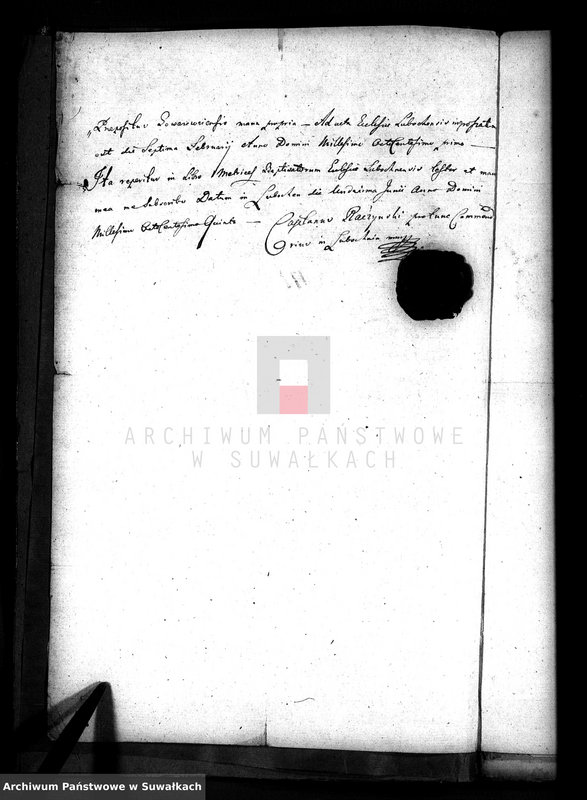 Præpositus manu propria — Ad acta Ecclesiæ Lubochensis
est die Septima Februarij Anno Domini Millesimo Octingentesimo primo —
Ita reperitur in Libro Metrices Baptisatorum Ecclesiæ Lubochensis testor et manu
mea me subscribo Datum in Lubochen die Undecima Junii Anno Domini
Millesimo Octingentesimo Quinto —
Raczynski Commend
in Lubochnia mpp
ARCHIWUM PAŃSTWOWE
W SUWAŁKACH
Archiwum Państwowe w Suwałkach